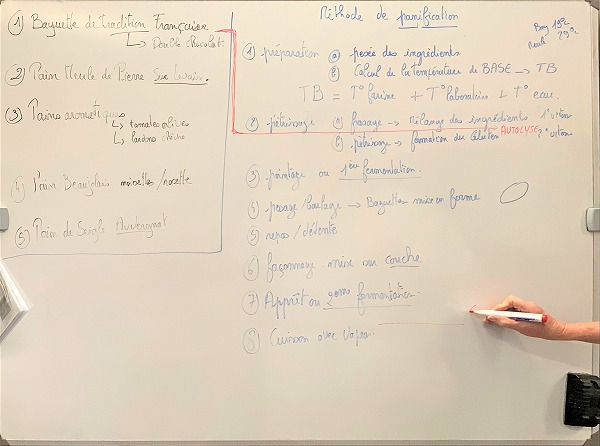 ① Baguette de tradition Française
↳ Double chocolat.
② Pain Meule de Pierre sur levain.
③ Pains aromatiques
↳ tomates olives
↳ lardons chèvre
④ Pain Beaujolais noisettes/rosette
⑤ Pain de Seigle Auvergnat
Méthode de panification
Bag 19°c
29°c
① préparation ⓐ pesée des ingrédients
ⓑ Calcul de la température de BASE → TB
TB = T° farine + T° laboratoire + T° eau.
② pétrissage ⓐ frasage → Mélange des ingrédients 1° vitesse
AUTOLYSE
ⓑ pétrissage → formation du Gluten 2° vitesse
③ pointage ou 1ère fermentation.
④ pesage/boulage → Baguettes mise en forme
⑤ repos / détente
⑥ façonnage mise sur couche
⑦ Apprêt ou 2ème fermentation
⑧ Cuisson avec vapeur.